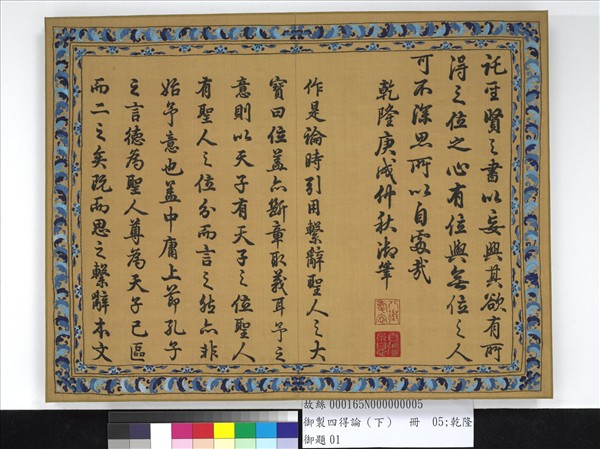 託聖賢之書以妄興其欲有所
得之位之心有位與無位之人
可不深思所以自處哉
乾隆庚戌仲秋御筆
作是論時引用繫辭聖人之大
寶曰位蓋亦斷章取義耳予之
意則以天子有天子之位聖人
有聖人之位分而言之然亦非
始予意也蓋中庸上節孔子
之言德為聖人尊為天子已區
而二之矣既而思之繫辭本文
故絲000165N000000005
御製四得論(下) 冊 05;乾隆
御題01